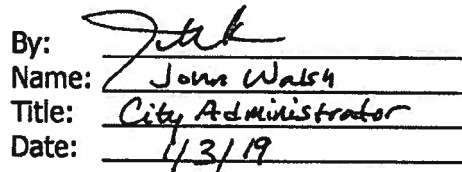 By:
Name: John Walsh
Title: City Administrator
Date: 1/3/19